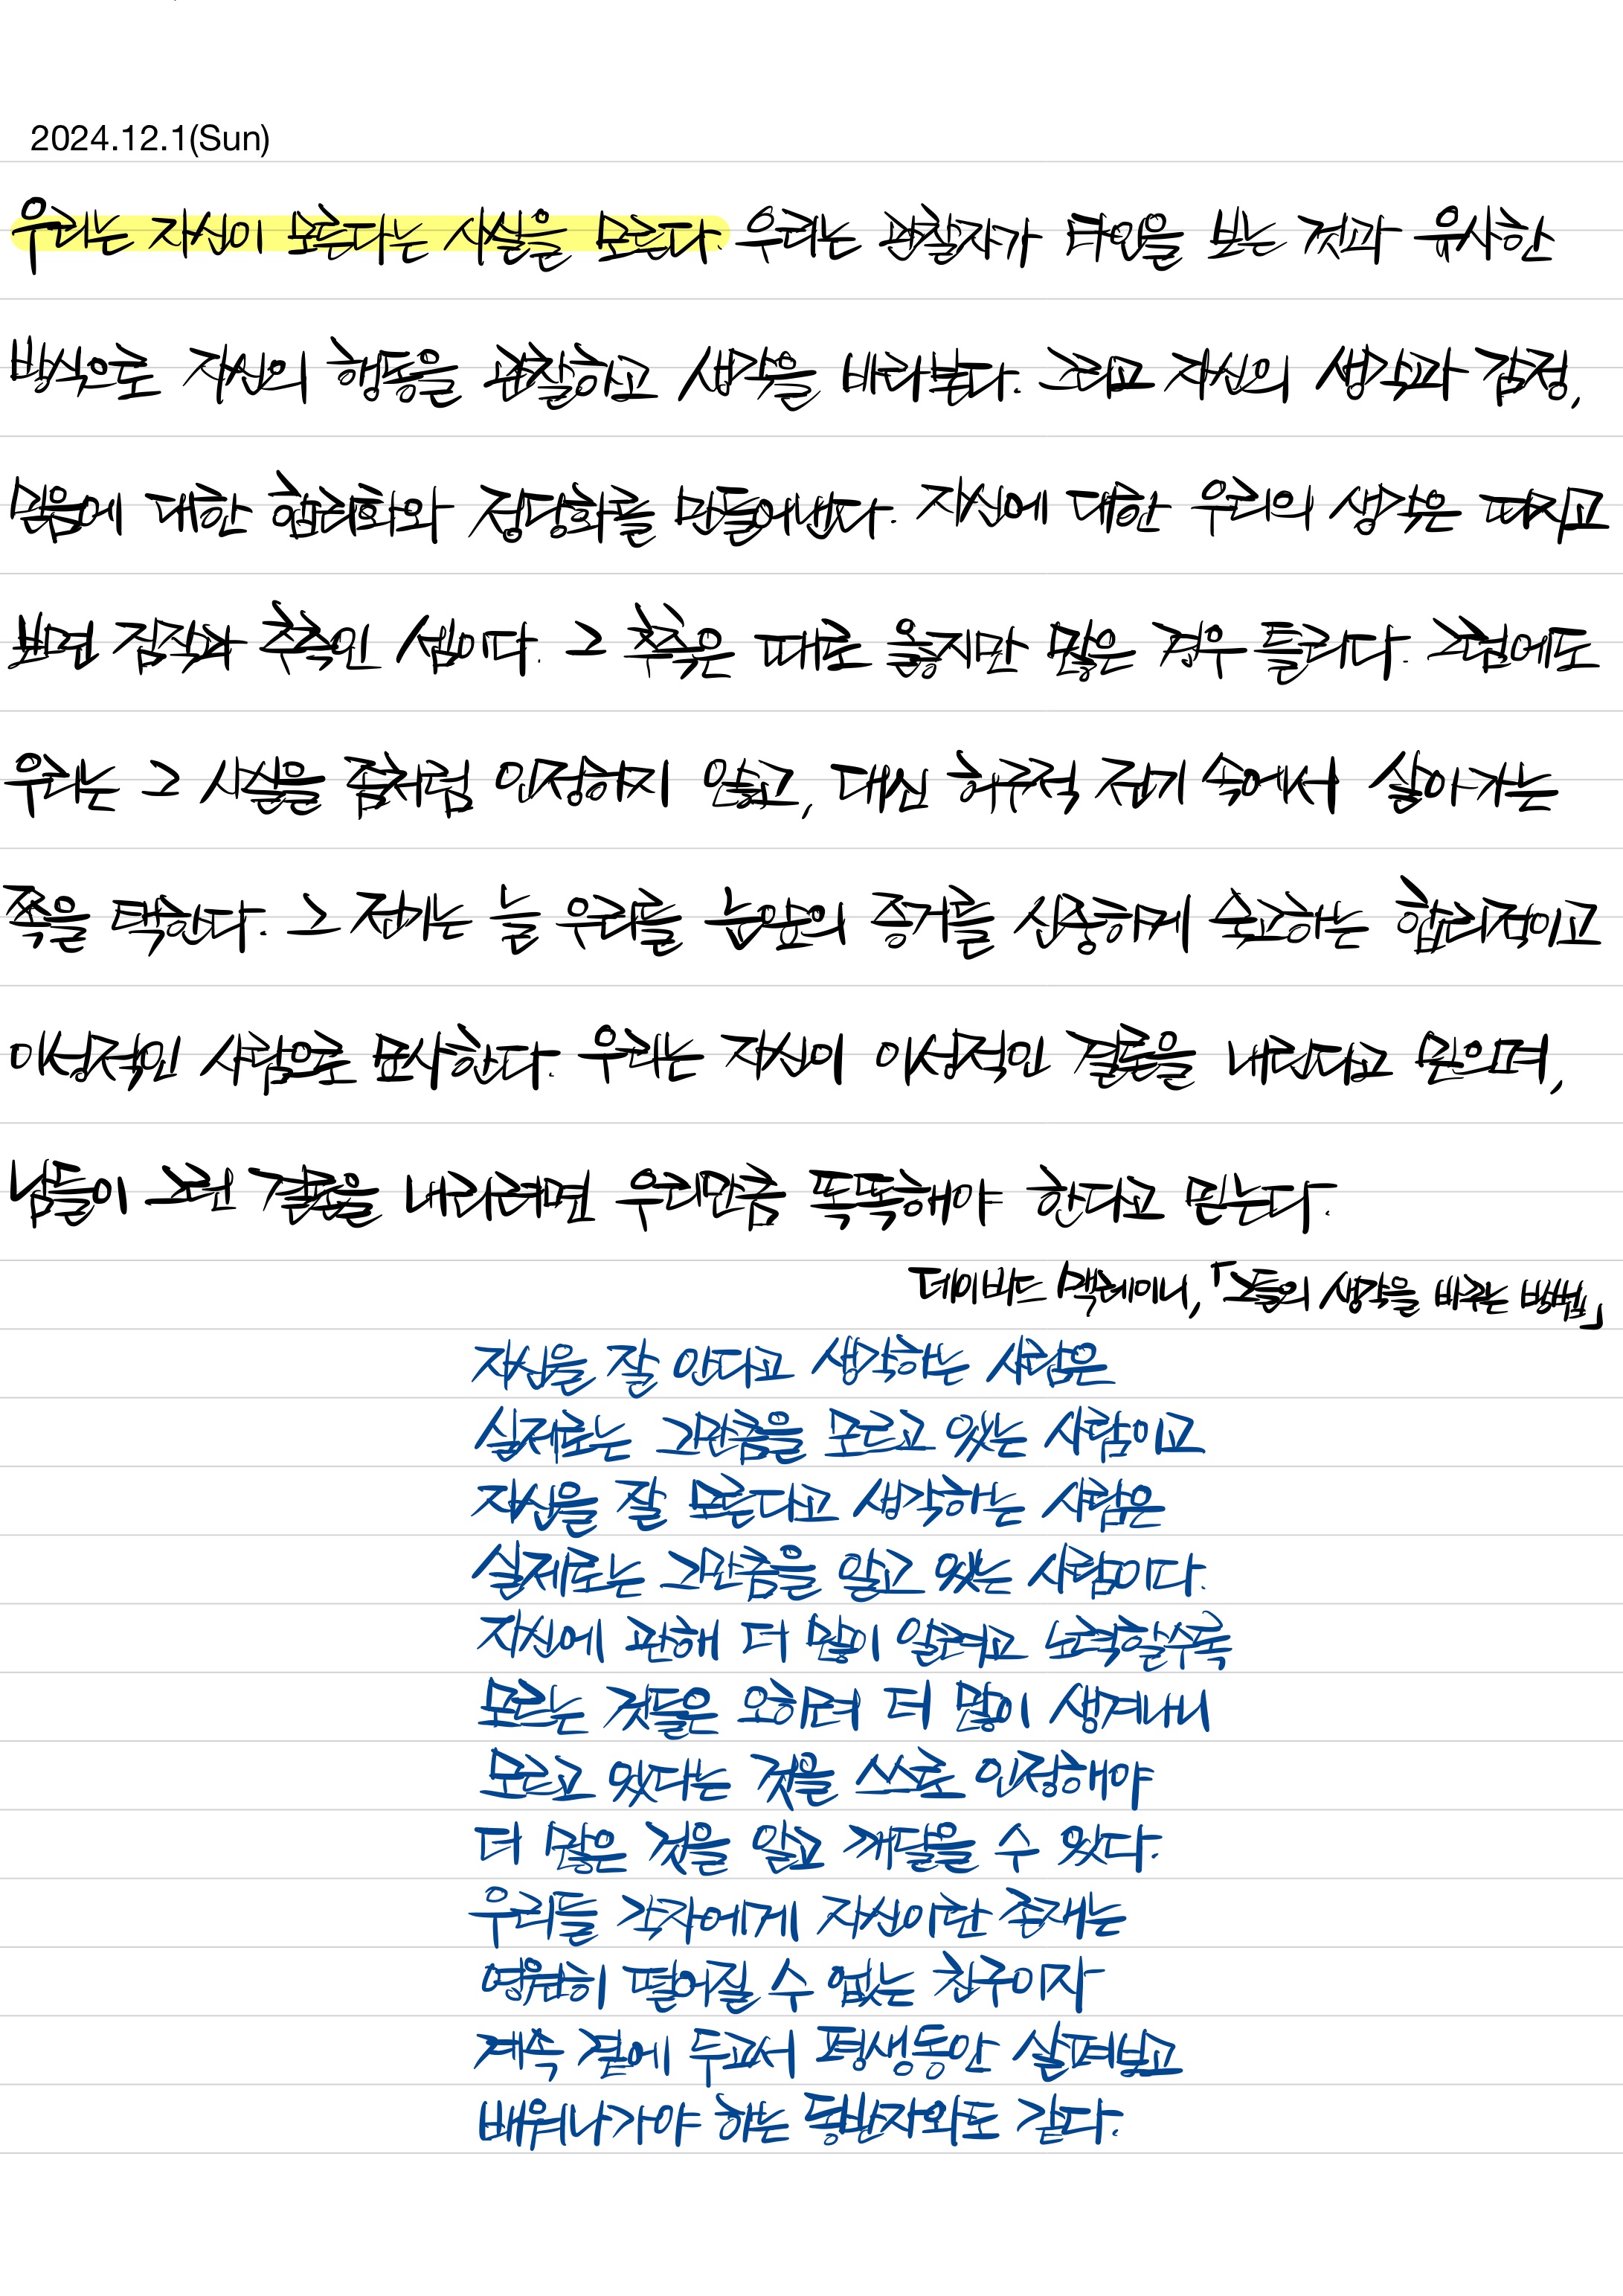 2024.12.1(Sun)
우리는 자신이 모른다는 사실을 모른다. 우리는 관찰자가 타인을 보는 것과 유사한
방식으로 자신의 행동을 관찰하고 생각을 바라본다. 그리고 자신의 생각과 감정,
믿음에 대한 합리화와 정당화를 만들어낸다. 자신에 대한 우리의 생각은 따지고
보면 짐작과 추측인 셈이다. 그 추측은 때로 옳지만 많은 경우 틀리다. 그럼에도
우리는 그 사실을 좀처럼 인정하지 않고, 대신 허구적 전기 속에서 살아가는
쪽을 택한다. 그 전기는 늘 우리를 눈앞의 증거를 신중하게 숙고하는 합리적이고
이성적인 사람으로 묘사한다. 우리는 자신이 이성적인 결론을 내린다고 믿으며,
남들이 그런 결론을 내리려면 우리만큼 똑똑해야 한다고 믿는다.
데이비드 맥레이니, 「그들의 생각을 바꾸는 방법」
자신을 잘 안다고 생각하는 사람은
실제로는 그만큼을 모르고 있는 사람이고
자신을 잘 모른다고 생각하는 사람은
실제로는 그만큼을 알고 있는 사람이다.
자신에 관해 더 많이 알려고 노력할수록
모르는 것들은 오히려 더 많이 생겨나니
모르고 있다는 것을 스스로 인정해야
더 많은 것을 알고 깨달을 수 있다.
우리들 각자에게 자신이란 존재는
영원히 떨어질 수 없는 친구이자
계속 곁에 두고서 평생동안 살펴보고
배워나가야 하는 동반자와도 같다.